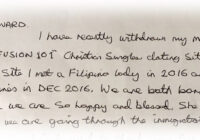 WARD
I have recently withdrawn my m
FUSION 101 Christian Singles dating Sit
Site I met a Filipino lady in 2016 a
in DEC 2016. We are both bor
we are So happy and blessed. She
we are going through the immigratio